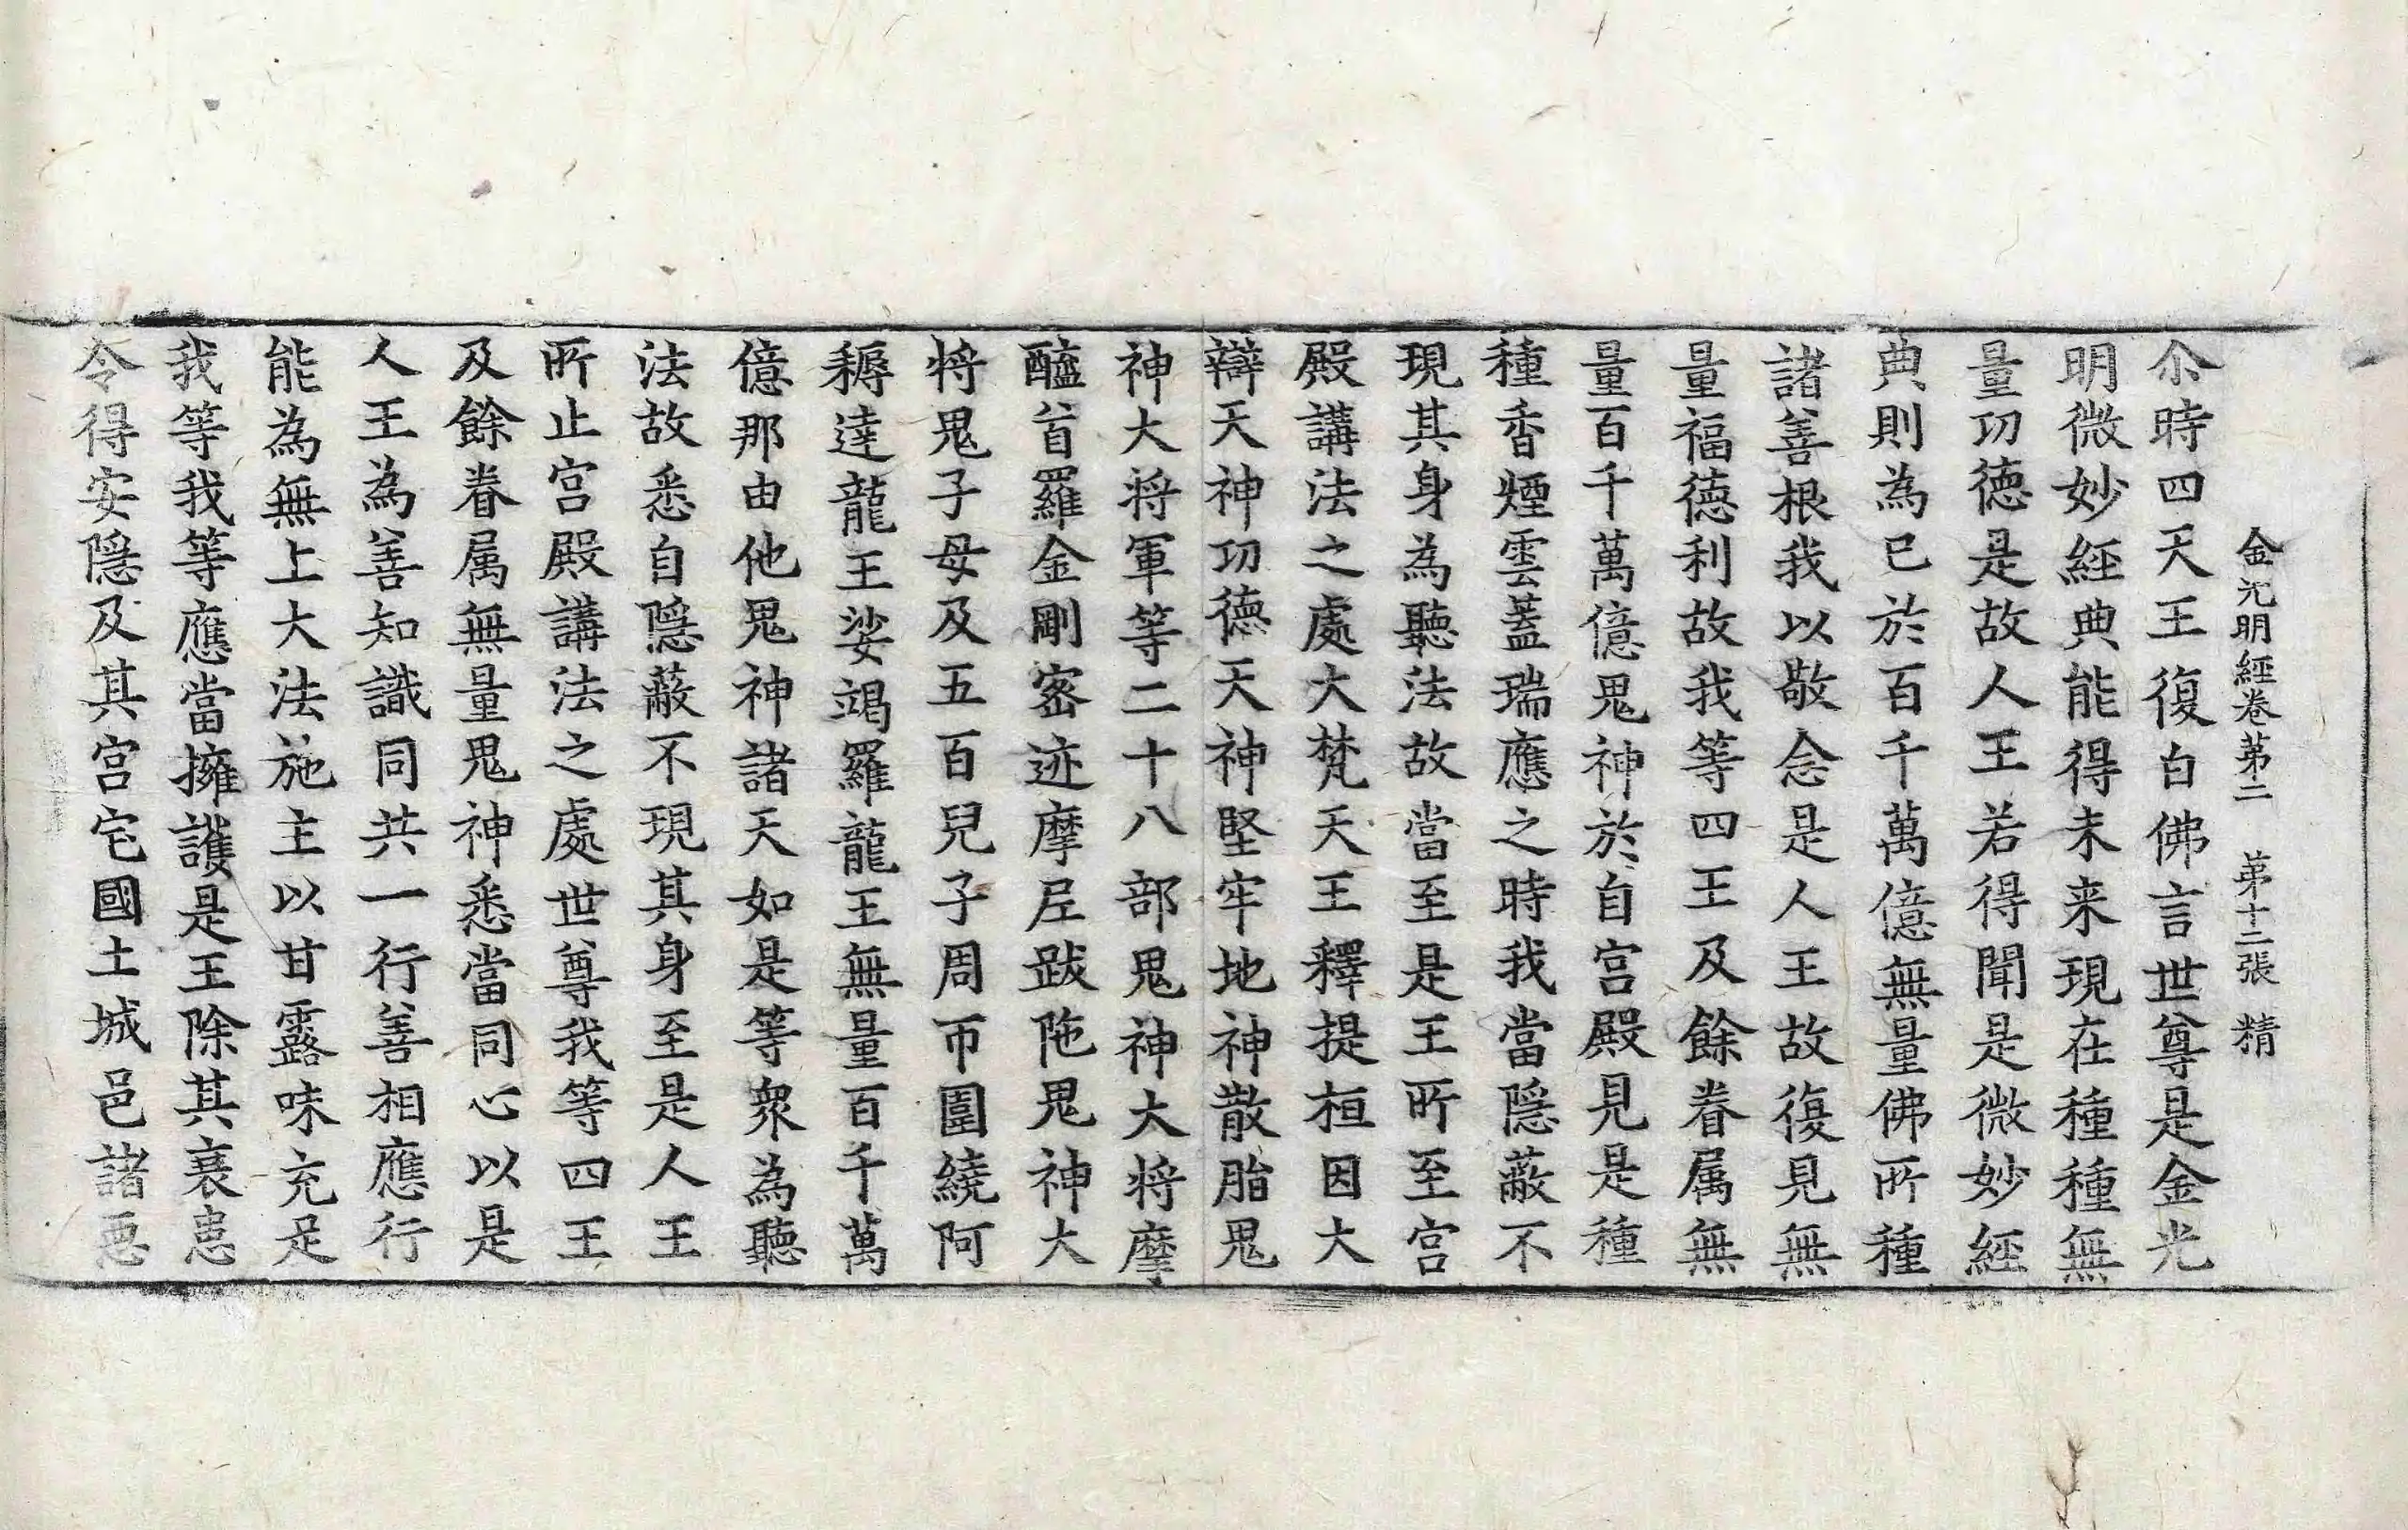 金光明經卷苐二　苐十二張　精
尒時四天王復白佛言世尊是金光
明微妙經典能得未来現在種種無
量功徳是故人王若得聞是微妙經
典則為已於百千萬億無量佛所種
諸善根我以敬念是人王故復見無
量福德利故我等四王及餘眷属無
量百千萬億鬼神於自宫殿見是種
種香煙雲蓋瑞應之時我當隱蔽不
現其身為聽法故當至是王所至宫
殿講法之處大梵天王釋提桓因大
辯天神功德天神堅牢地神散脂鬼
神大将軍等二十八部鬼神大将摩
醯首羅金剛密迹摩尼跋陁鬼神大
将鬼子母及五百兒子周帀圍繞阿
耨達龍王娑竭羅龍王無量百千萬
億那由他鬼神諸天如是等衆為聽
法故悉自隱蔽不現其身至是人王
所止宫殿講法之處世尊我等四王
及餘眷属無量鬼神悉當同心以是
人王為善知識同共一行善相應行
能為無上大法施主以甘露味充足
我等我等應當擁護是王除其衰患
令得安隱及其宫宅國土城邑諸惡